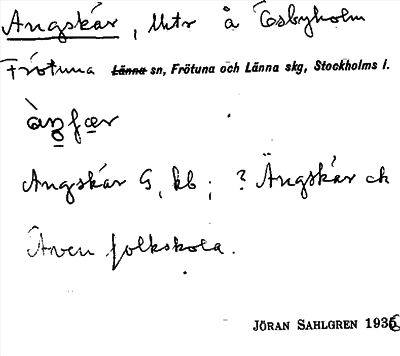 Ängskär, Uttr å Esbyholm
Frötuna Länna sn, Frötuna och Länna skg, Stockholms l.
Ängskär G, kb; ? Ängskär ek
Även folkskola.
JÖRAN SAHLGREN 1936